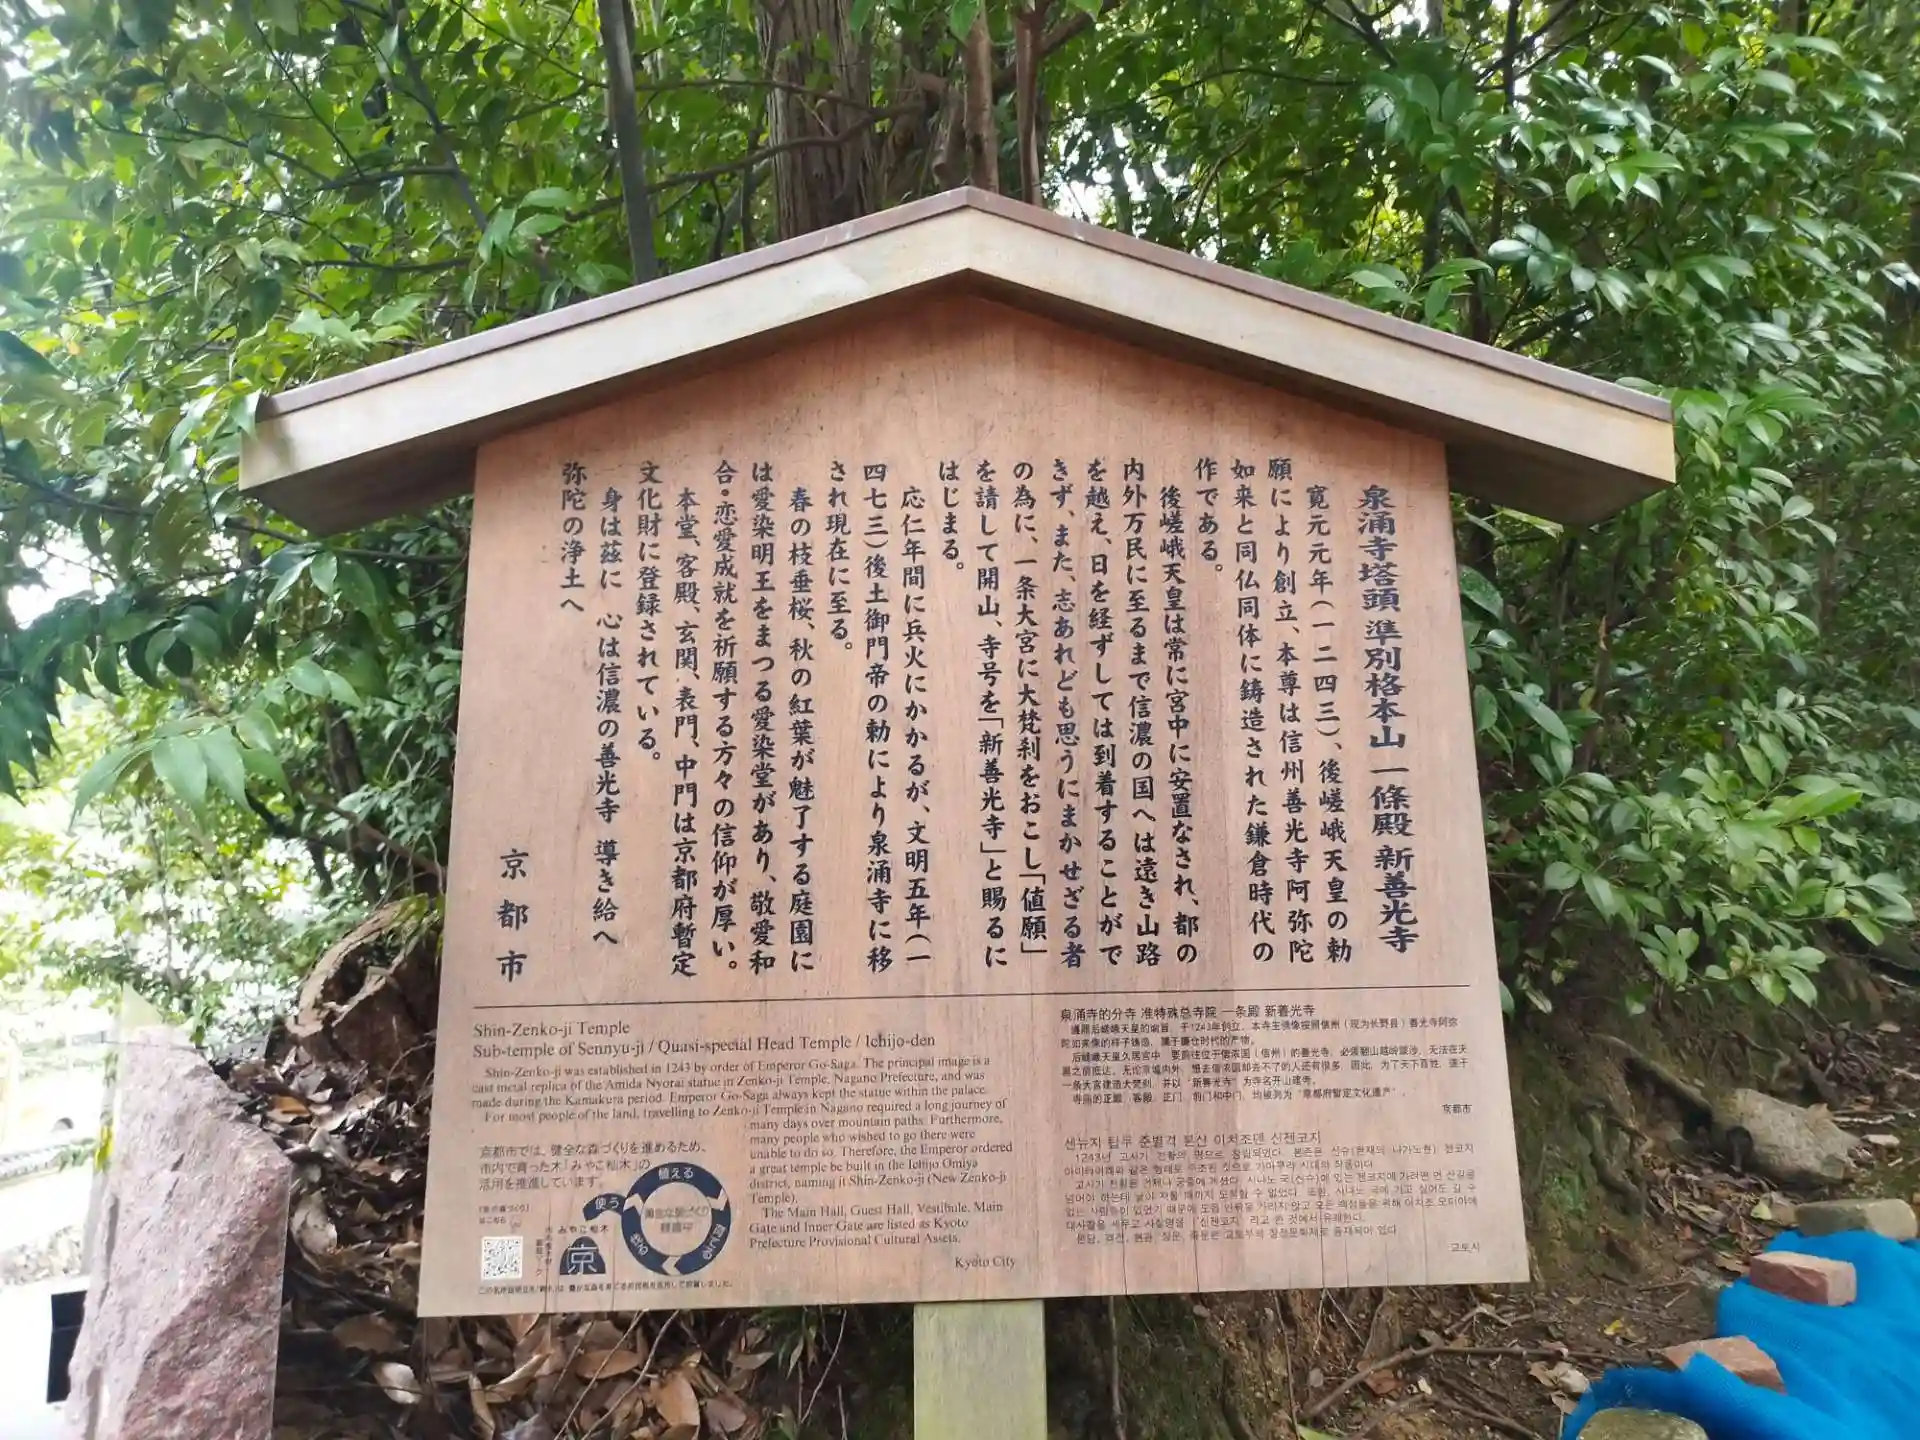 泉涌寺塔頭 準別格本山 一條殿 新善光寺
寛元元年（一二四三）、後嵯峨天皇の勅
願により創立、本尊は信州善光寺阿弥陀
如来と同仏同体に鋳造された鎌倉時代の
作である。
後嵯峨天皇は常に宮中に安置なされ、都の
内外万民に至るまで信濃の国へは遠き山路
を越え、日を経ずしては到着することがで
きず、また、志あれども思うにまかせざる者
の為に、一条大宮に大梵刹をおこし「値願」
を請して開山、寺号を「新善光寺」と賜るに
はじまる。
応仁年間に兵火にかかるが、文明五年（一
四七三）後土御門帝の勅により泉涌寺に移
され現在に至る。
春の枝垂桜、秋の紅葉が魅了する庭園に
は愛染明王をまつる愛染堂があり、敬愛和
合・恋愛成就を祈願する方々の信仰が厚い。
本堂、客殿、玄関、表門、中門は京都府暫定
文化財に登録されている。
身は茲に 心は信濃の善光寺 導き給へ
弥陀の浄土へ
京都市
Shin-Zenko-ji Temple
Sub-temple of Sennyu-ji / Quasi-special Head Temple / Ichijo-den
Shin-Zenko-ji was established in 1243 by order of Emperor Go-Saga. The principal image is a
cast metal replica of the Amida Nyorai statue in Zenko-ji Temple, Nagano Prefecture, and was
made during the Kamakura period. Emperor Go-Saga always kept the statue within the palace.
For most people of the land, travelling to Zenko-ji Temple in Nagano required a long journey of
many days over mountain paths. Furthermore,
many people who wished to go there were
unable to do so. Therefore, the Emperor ordered
a great temple be built in the Ichijo Omiya
district, naming it Shin-Zenko-ji (New Zenko-ji
Temple).
The Main Hall, Guest Hall, Vestibule, Main
Gate and Inner Gate are listed as Kyoto
Prefecture Provisional Cultural Assets.
Kyoto City
京都市では、健全な森づくりを進めるため、
市内で育った木「みやこ杣木」の
活用を推進しています。
植える
使う
みやこ杣木
京
泉涌寺的分寺 准特殊总寺院 一条殿 新善光寺
遵照后嵯峨天皇的敕旨，于1243年创立。本寺主佛像按照信州（现为长野县）善光寺阿弥
陀如来像的样子铸造，属于镰仓时代的产物。
京都市
센뉴지 탑두 준별격 본산 이치조덴 신젠코지
교토시